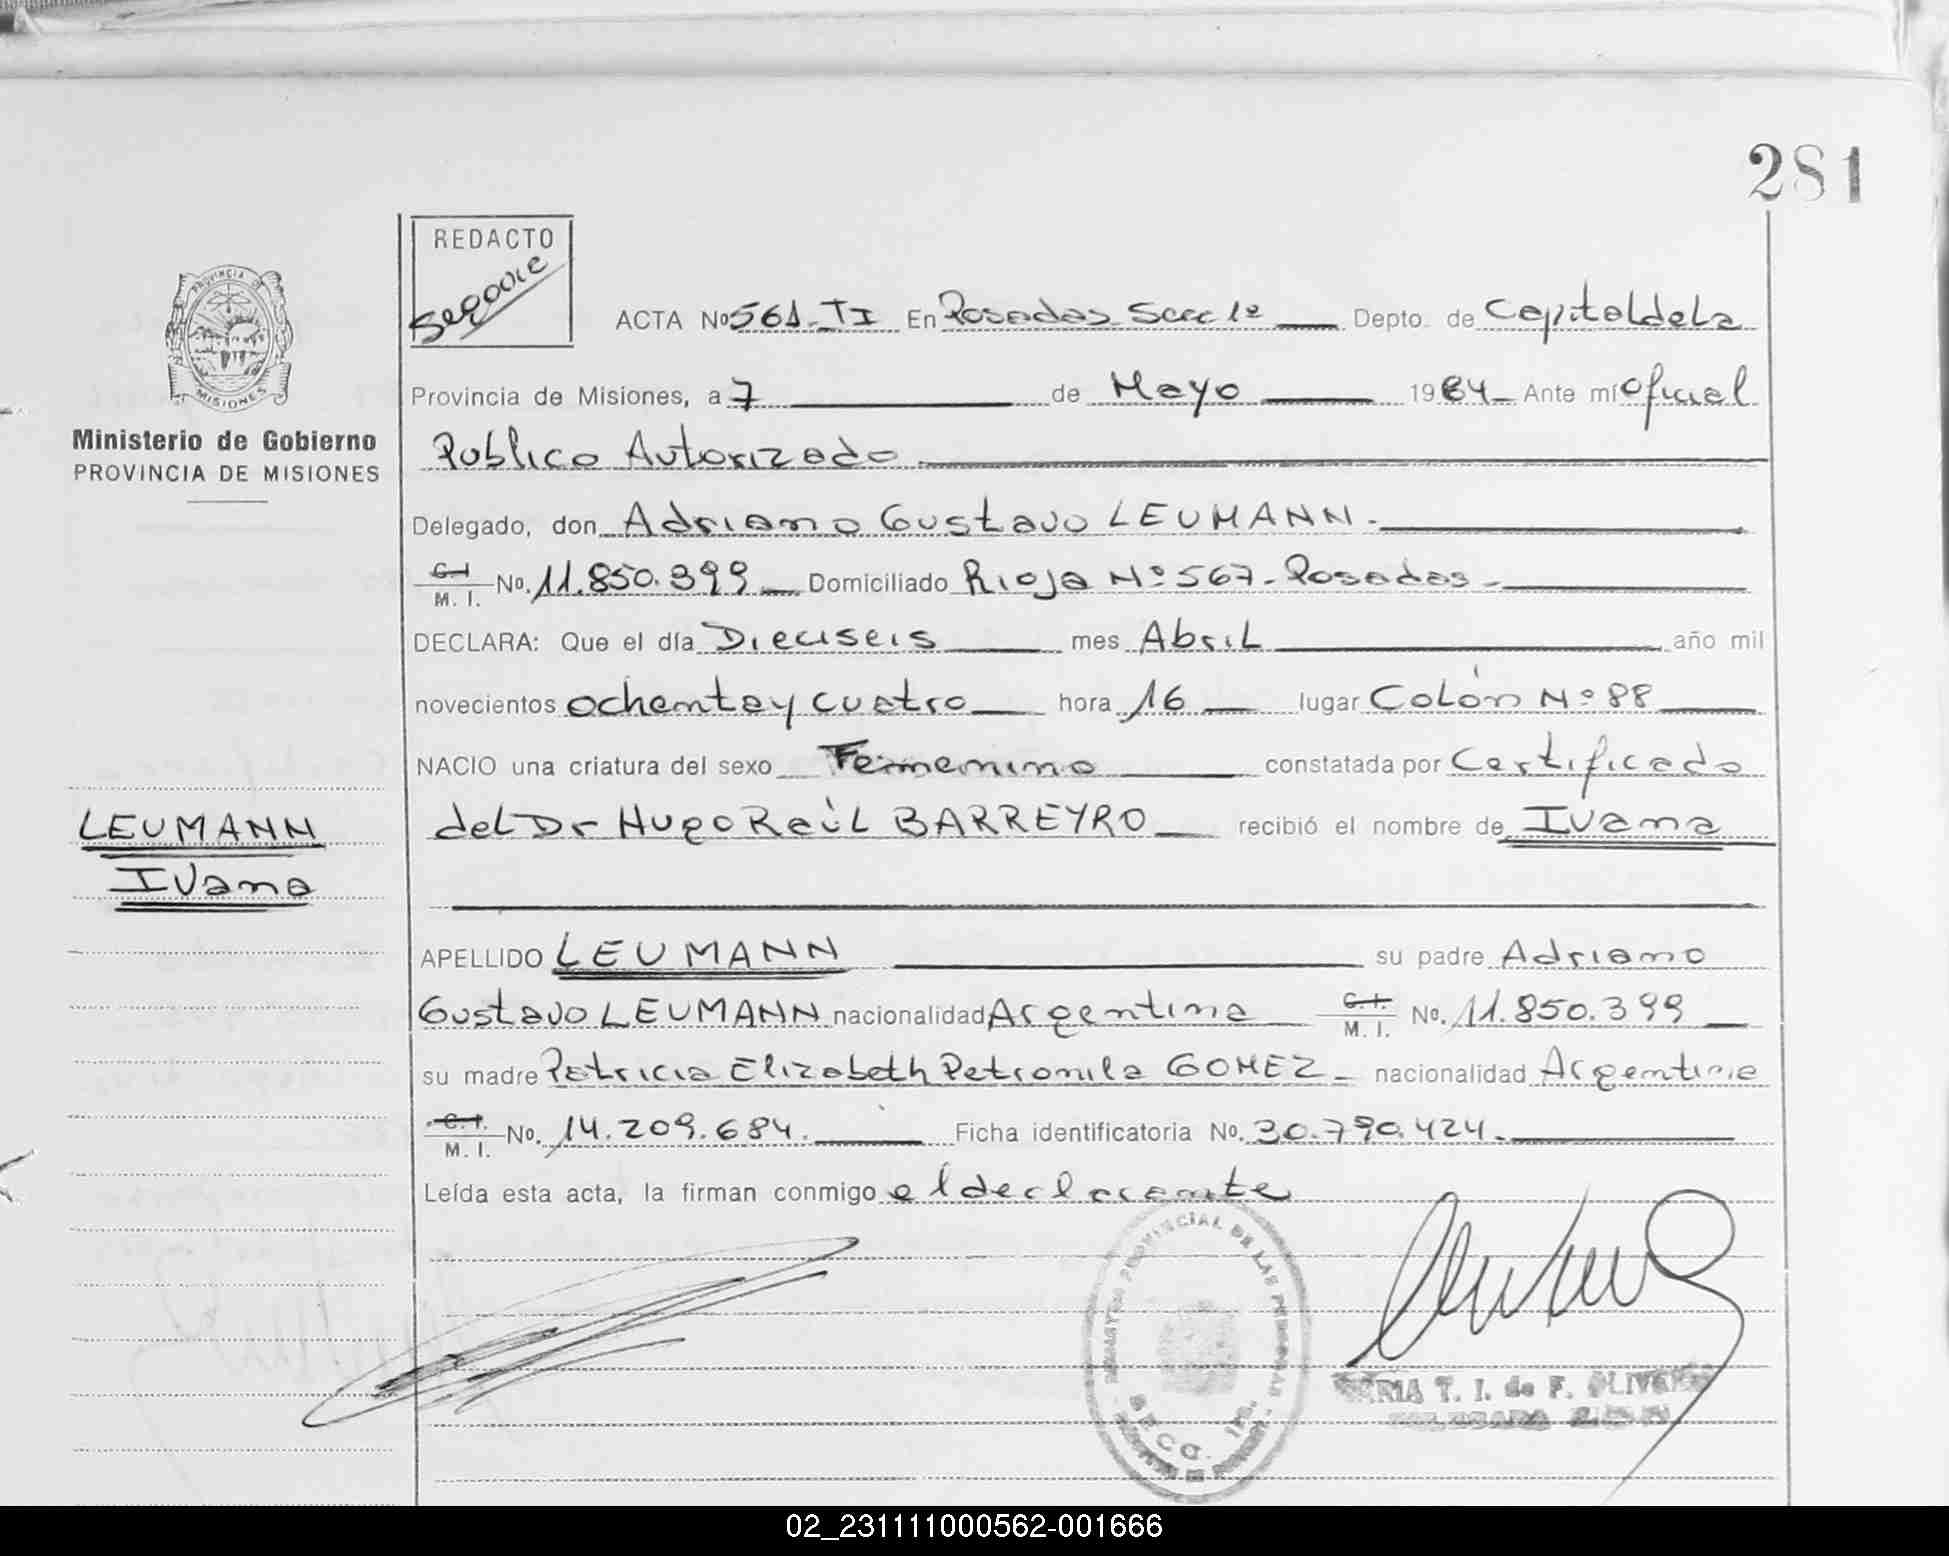 281
REDACTO
Segovie
ACTA Nº 561-TI En Posadas Secc 1ª Depto. de Capital de La
Provincia de Misiones, a 7 de Mayo 1984 Ante mí Oficial
Publico Autorizado
Delegado, don Adriano Gustavo LEUMANN.
C.I. M. I. Nº. 11.850.399 Domiciliado Rioja Nº 567- Posadas-
DECLARA: Que el día Dieciseis mes Abril año mil
novecientos ochenta y cuatro hora 16 lugar Colón Nº 88
NACIO una criatura del sexo Femenino constatada por Certificado
del Dr Hugo Raúl BARREYRO recibió el nombre de Ivana
APELLIDO LEUMANN su padre Adriano
Gustavo LEUMANN nacionalidad Argentina C.I. M. I. Nº. 11.850.399
su madre Patricia Elizabeth Petronila GOMEZ- nacionalidad Argentina
C.I. M. I. Nº. 14.209.684. Ficha identificatoria Nº. 30.790.424.
Leída esta acta, la firman conmigo el declarante
PROVINCIA DE
MISIONES
Ministerio de Gobierno
PROVINCIA DE MISIONES
LEUMANN
Ivana
PROVINCIAL DE LAS PERSONAS
SECC. 1ra.
MARIA T. I. de F. OLIVERA
02_231111000562-001666